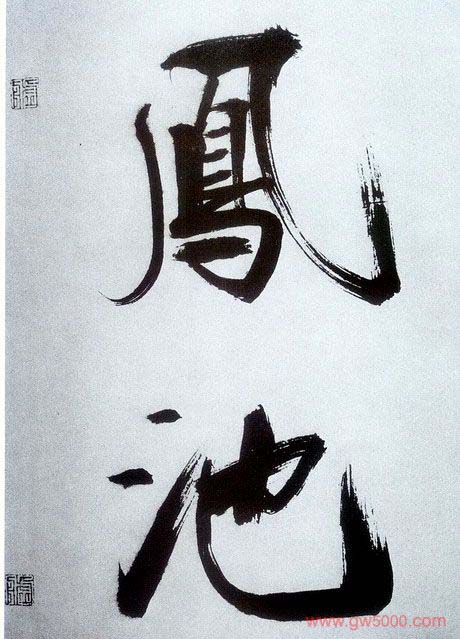 鳳
池
www.gw5000.com